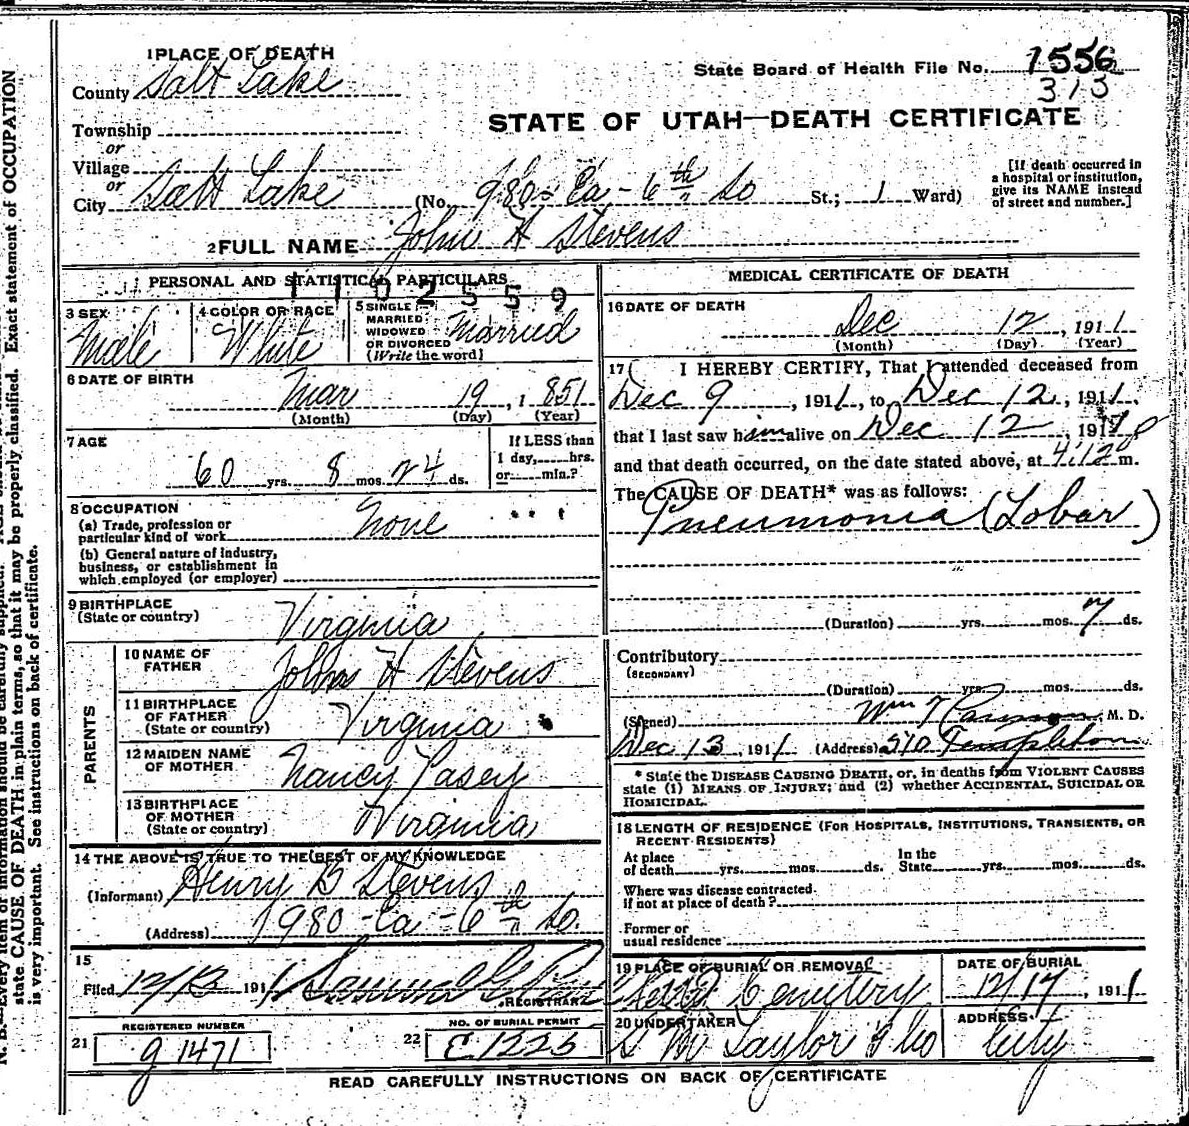 1 PLACE OF DEATH
County Salt Lake
State Board of Health File No. 1556
313
STATE OF UTAH—DEATH CERTIFICATE
Township
or
Village
or
City Salt Lake (No. 980 Ea - 6th So St.; 1 Ward)
[If death occurred in
a hospital or institution,
give its NAME instead
of street and number.]
2 FULL NAME John H Stevens
PERSONAL AND STATISTICAL PARTICULARS
1102559
3 SEX
Male
4 COLOR OR RACE
White
5 SINGLE
MARRIED
WIDOWED
OR DIVORCED
(Write the word)
Married
6 DATE OF BIRTH
Mar 19, 1851
(Month) (Day) (Year)
7 AGE
60 yrs. 8 mos. 24 ds.
If LESS than
1 day, hrs.
or min.?
8 OCCUPATION
(a) Trade, profession or
particular kind of work None
(b) General nature of industry,
business, or establishment in
which employed (or employer)
9 BIRTHPLACE
(State or country)
Virginia
PARENTS
10 NAME OF
FATHER
John H Stevens
11 BIRTHPLACE
OF FATHER
(State or country)
Virginia
12 MAIDEN NAME
OF MOTHER
Nancy
13 BIRTHPLACE
OF MOTHER
(State or country)
Virginia
14 THE ABOVE IS TRUE TO THE BEST OF MY KNOWLEDGE
(Informant) Henry B Stevens
(Address) 980 - Ea - 6th So.
15
Filed 12/13 1911
REGISTRAR
REGISTERED NUMBER
21 g 1471
NO. OF BURIAL PERMIT
22 E.1225
MEDICAL CERTIFICATE OF DEATH
16 DATE OF DEATH
Dec 12, 1911
(Month) (Day) (Year)
17 I HEREBY CERTIFY, That I attended deceased from
Dec 9, 1911, to Dec 12, 1911,
that I last saw him alive on Dec 12, 191
and that death occurred, on the date stated above, at 4:12 m.
The CAUSE OF DEATH* was as follows:
Pneumonia (Lobar)
(Duration) yrs. mos. 7 ds.
Contributory
(SECONDARY)
(Duration) yrs. mos. ds.
(Signed) Wm T M. D.
Dec 13, 1911 (Address) 510 Templeton
* State the DISEASE CAUSING DEATH, or, in deaths from VIOLENT CAUSES
state (1) MEANS OF INJURY; and (2) whether ACCIDENTAL, SUICIDAL OR
HOMICIDAL.
18 LENGTH OF RESIDENCE (FOR HOSPITALS, INSTITUTIONS, TRANSIENTS, OR
RECENT RESIDENTS)
At place
of death yrs. mos. ds.
In the
State yrs. mos. ds.
Where was disease contracted
if not at place of death?
Former or
usual residence
19 PLACE OF BURIAL OR REMOVAL
Cemetery
DATE OF BURIAL
12/17, 1911
20 UNDERTAKER
S M Taylor & Co
ADDRESS
City
READ CAREFULLY INSTRUCTIONS ON BACK OF CERTIFICATE
state CAUSE OF DEATH in plain terms, so that it may be properly classified. Exact statement of OCCUPATION
is very important. See instructions on back of certificate.